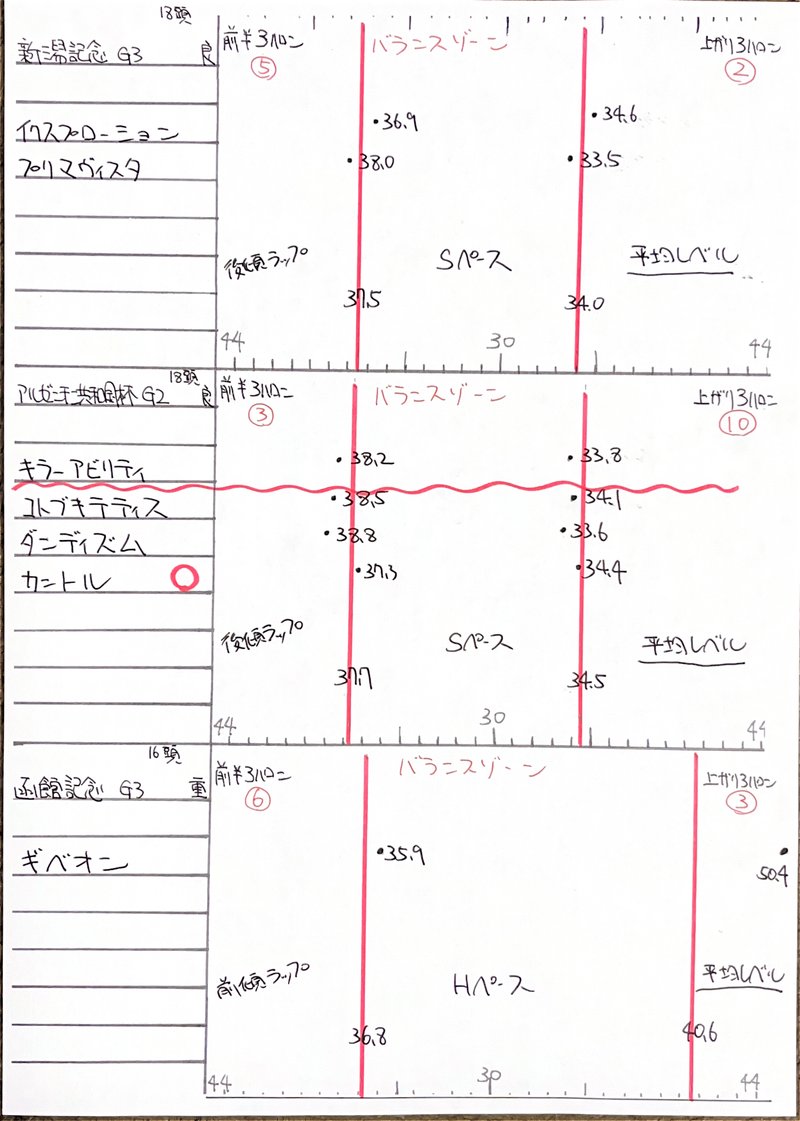 18頭
新潟記念 G3 良 前半3ハロン バランスゾーン 上がり3ハロン
⑤ ②
イクスプロージョン •36.9 •34.6
プリマヴィスタ •38.0 •33.5
後傾ラップ Sペース 平均レベル
37.5 34.0
44 30 44
18頭
アルゼンチン共和国杯 G2 良 前半3ハロン バランスゾーン 上がり3ハロン
③ ⑩
キラーアビリティ •38.2 •33.8
コトブキテティス •38.5 •34.1
ダンディズム •38.8 •33.6
カントル ○ •37.3 •34.4
後傾ラップ Sペース 平均レベル
37.7 34.5
44 30 44
16頭
函館記念 G3 重 前半3ハロン バランスゾーン 上がり3ハロン
⑥ ③
ギベオン •35.9 •50.4
前傾ラップ Hペース 平均レベル
36.8 40.6
44 30 44